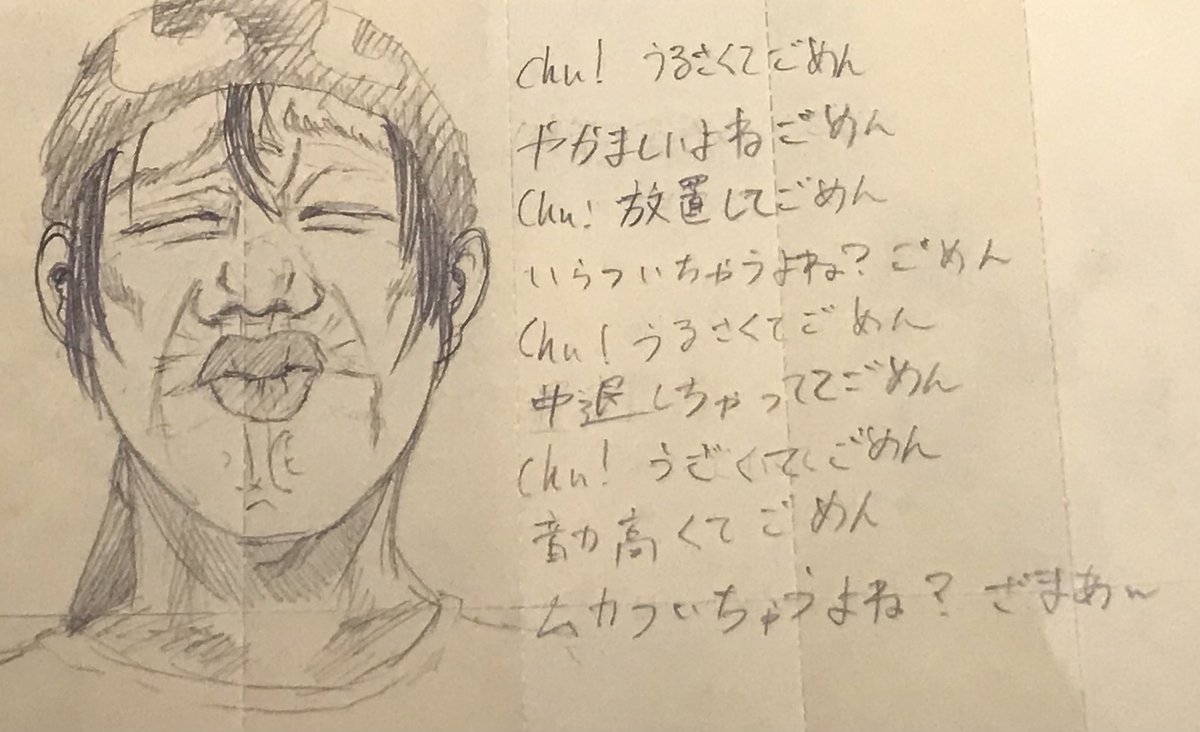 Chu! うるさくてごめん
やかましいよねごめん
Chu! 放置してごめん
いらついちゃうよね?ごめん
Chu! うるさくてごめん
中退しちゃっててごめん
Chu! うざくてごめん
高くてごめん
ムカついちゃうよね?ざまあw